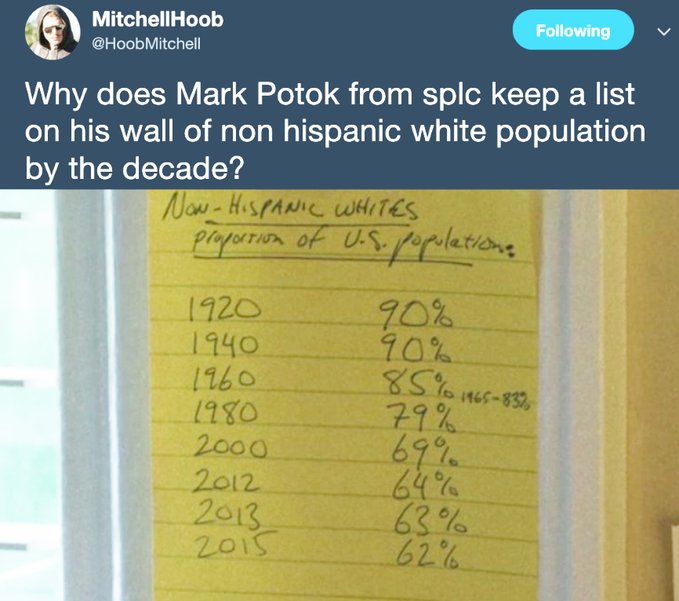 MitchellHoob
@HoobMitchell
Following
Why does Mark Potok from splc keep a list
on his wall of non hispanic white population
by the decade?
NON-HISPANIC WHITES
proportion of U.S. population:
1920 90%
1940 90%
1960 85% 1965-83%
1980 79%
2000 69%
2012 64%
2013 63%
2015 62%